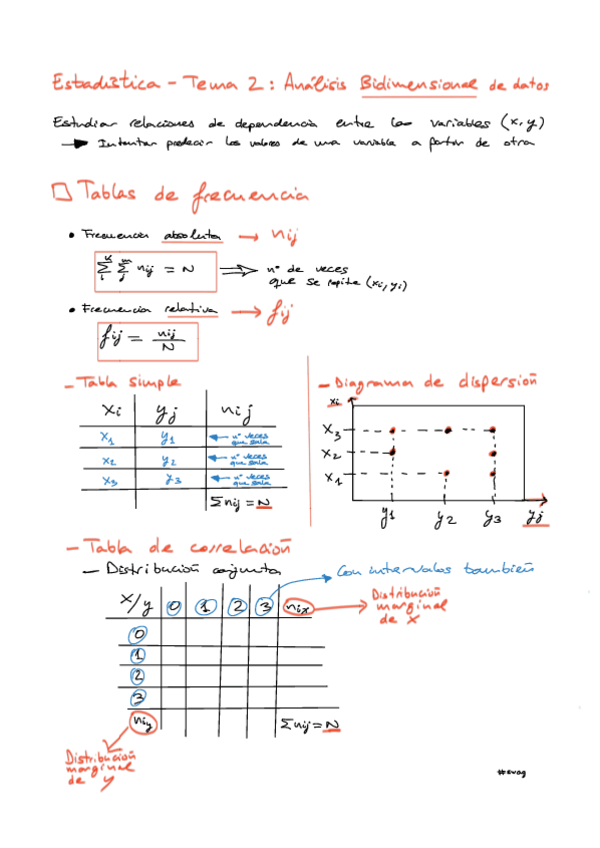 Estadística - Tema 2: Análisis Bidimensional de datos
Estudiar relaciones de dependencia entre las variables (x, y)
→ Intentar predecir los valores de una variable a partir de otra
Tablas de frecuencia
• Frecuencia absoluta → nij
Σ Σ nij = N ⇒ nº de veces
que se repite (xi, yi)
• Frecuencia relativa → fij
fij = nij / N
- Tabla simple
xi yj nij
x1 y1 ← nº veces que sale
x2 y2 ← nº veces que sale
x3 y3 ← nº veces que sale
Σnij = N
- Diagrama de dispersión
xi
x3
x2
x1
y1 y2 y3 yj
- Tabla de correlación
- Distribución conjunta → Con intervalos también
x/y 0 1 2 3 nix → Distribución marginal de x
0
1
2
3
niy Σnij = N
Distribución
marginal
de y